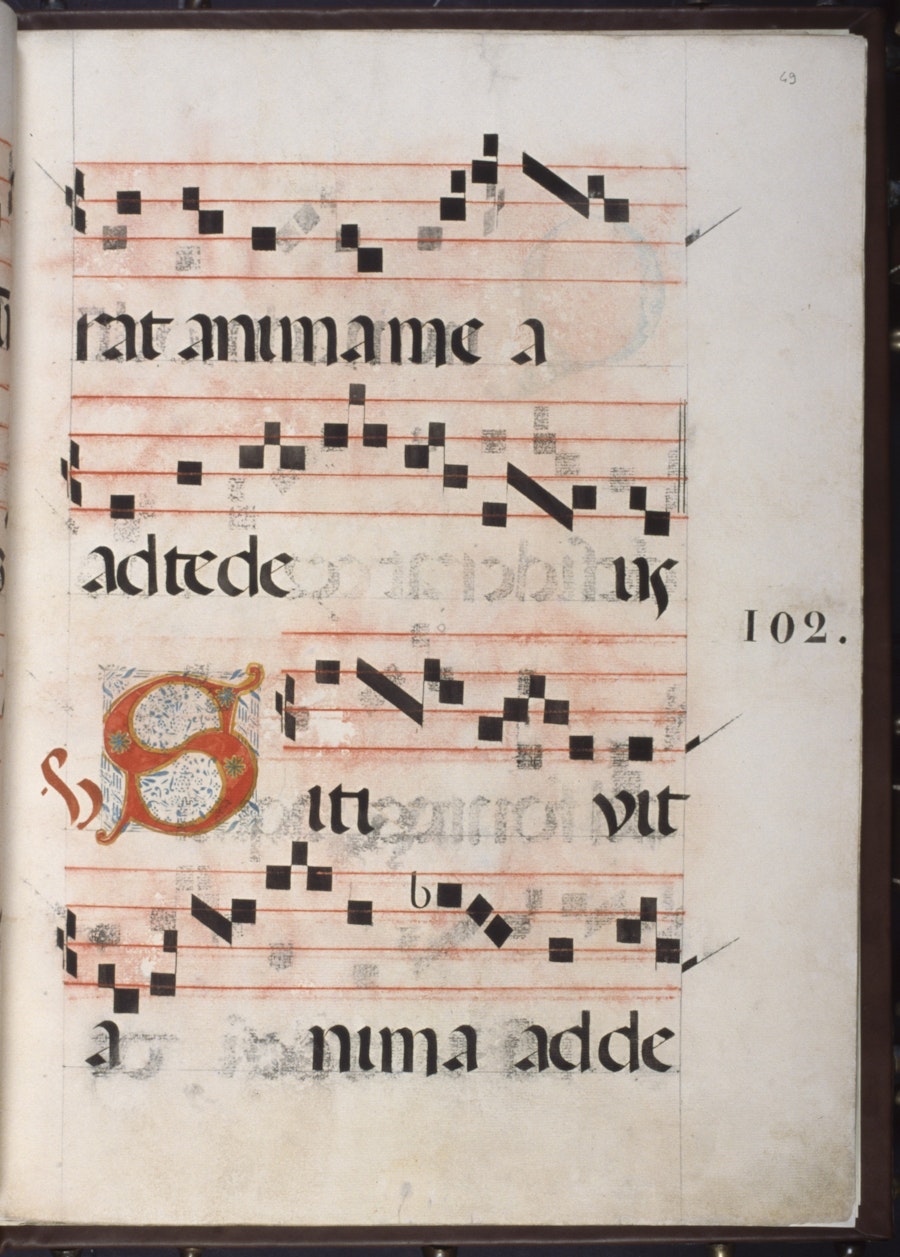 49
rat anima me a
ad te de us
102.
V Siti vit
b
a nima ad de